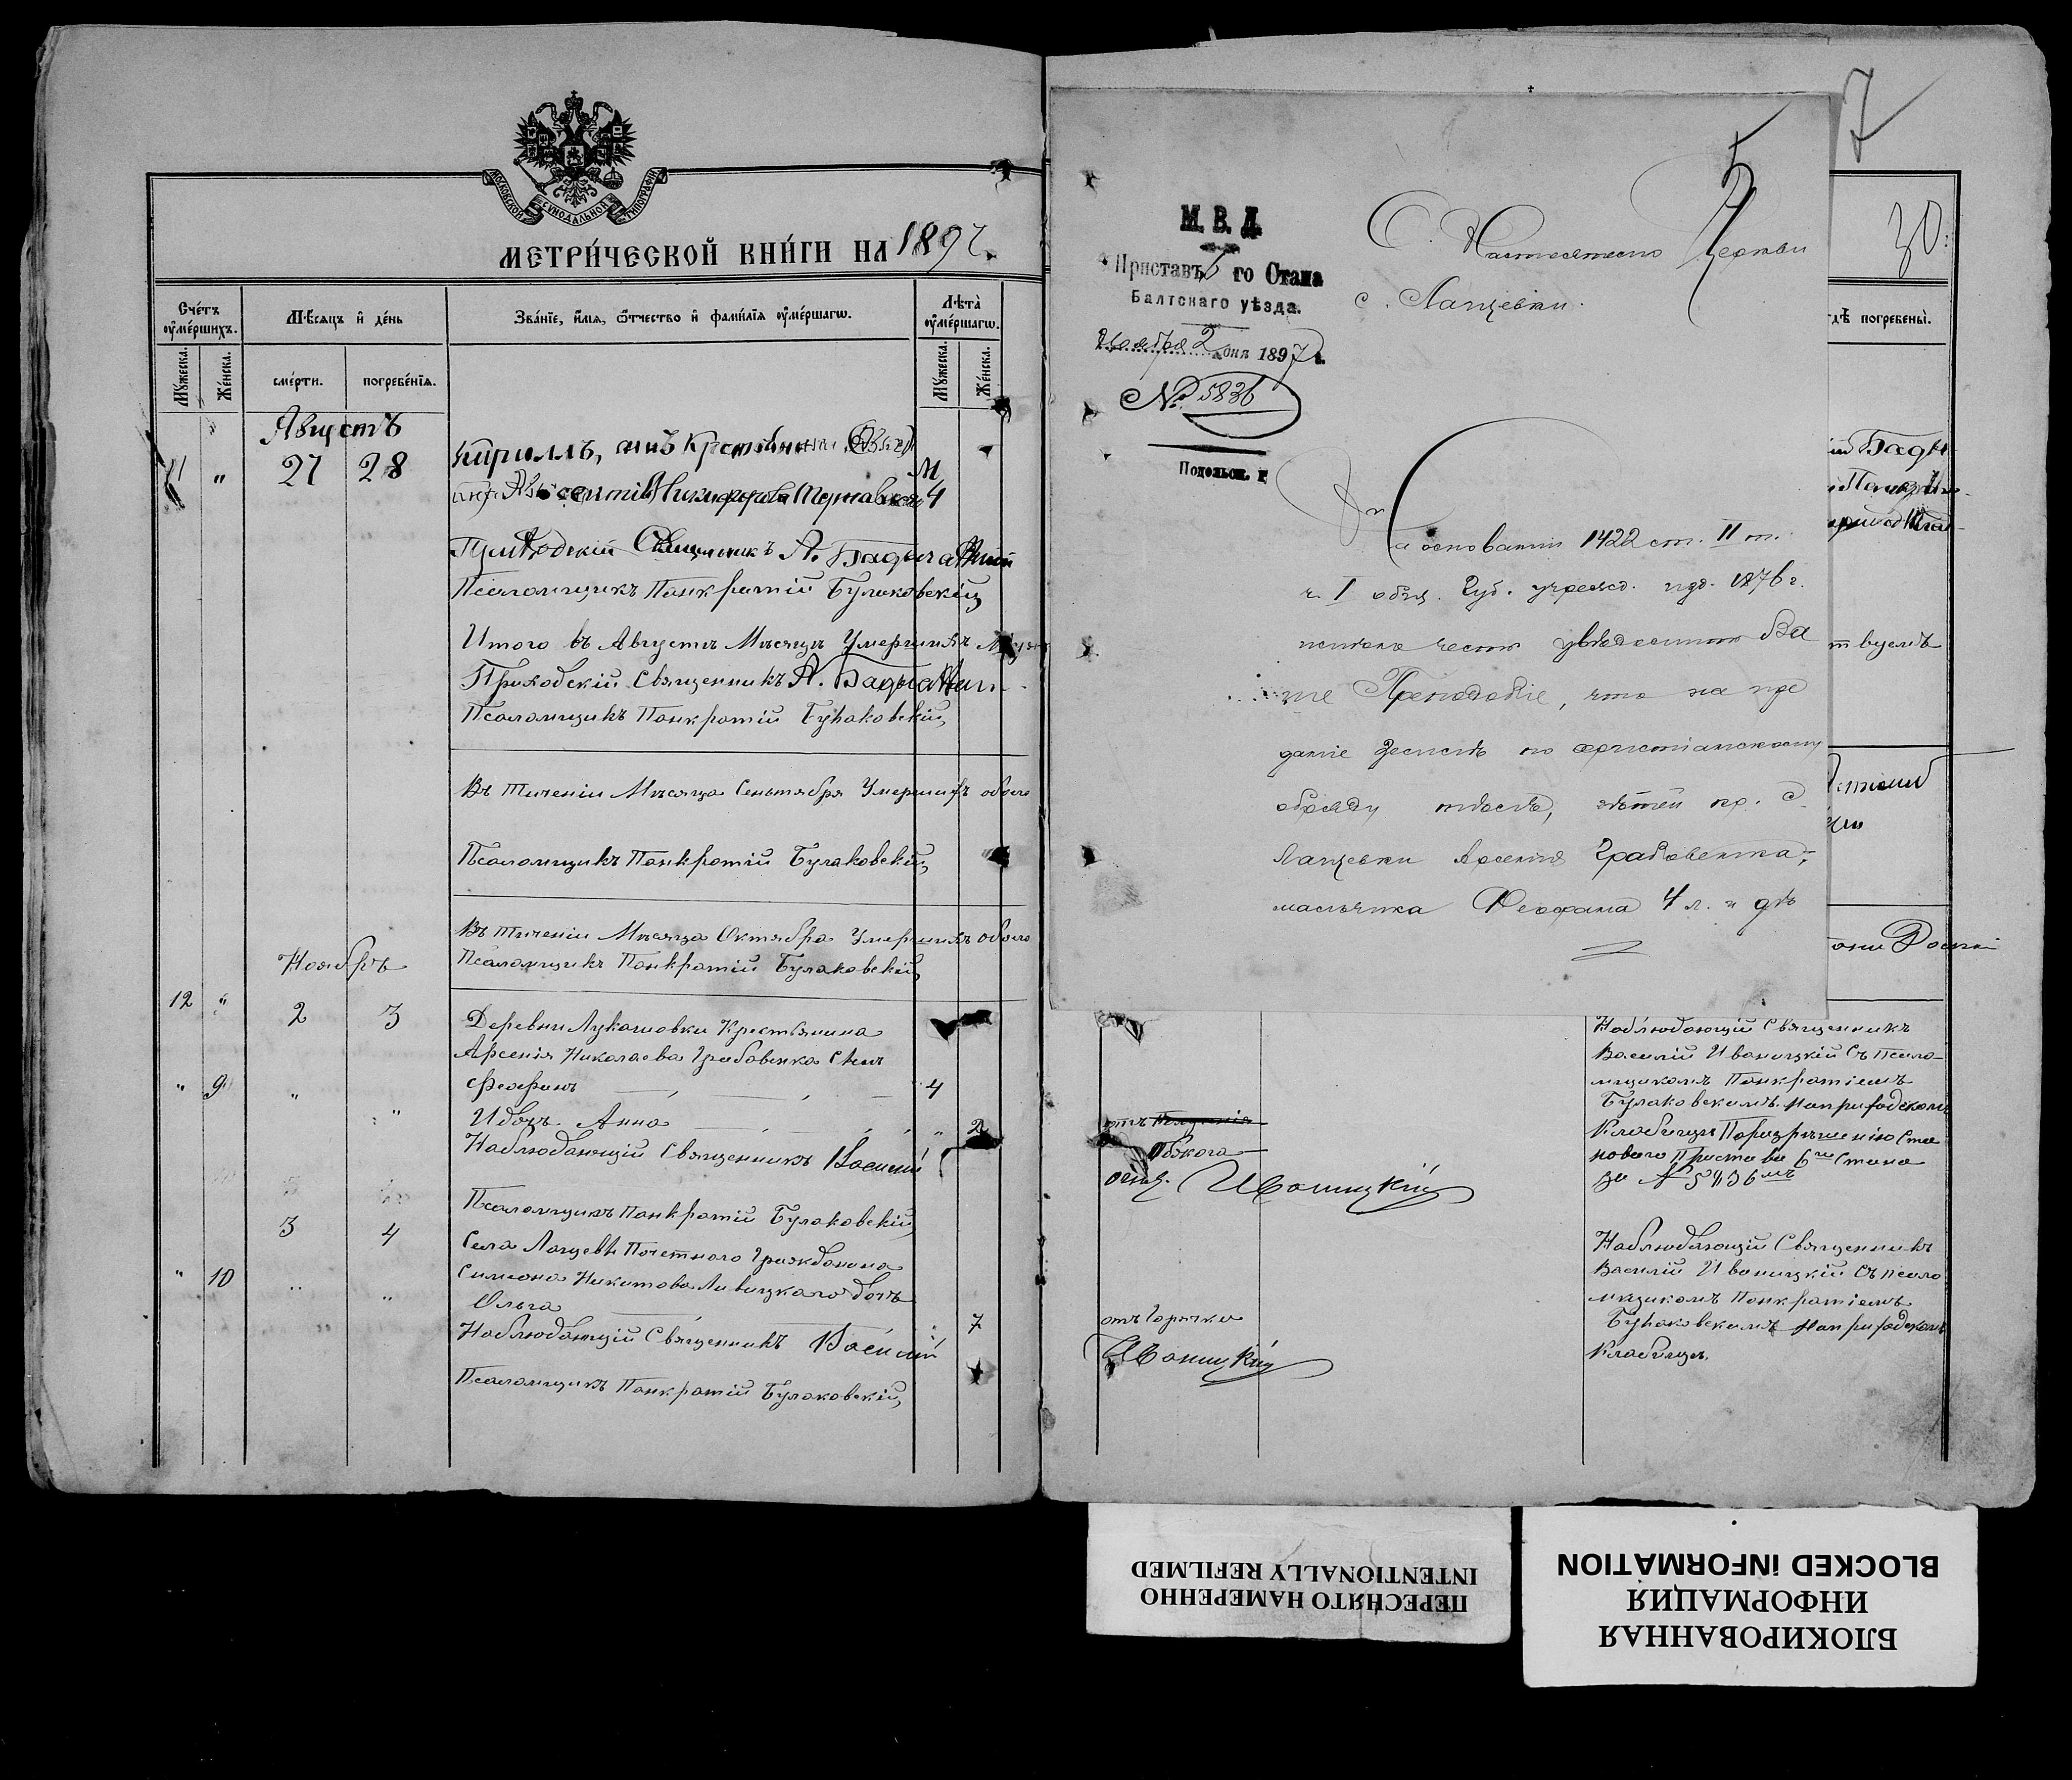 МОСКОВСКОЙ СУНОДАЛЬНОЙ ТИПОГРАФІИ
МЕТРИ́ЧЕСКОЙ КНИ́ГИ НА 1897.
Сче́тъ оу҆ме́ршихъ.
Мѣ́сяцъ и҆ де́нь
Зва́нїе, и҆́мя, ѻ҆́тчество и҆ фами́лїя оу҆ме́ршагѡ.
Лѣта̀ оу҆ме́ршагѡ.
Му́жеска.
Же́нска.
сме́рти.
погребе́нїя.
Му́жеска.
Же́нска.
Августъ
11 " 27 28
Кириллъ,
Никифорова
М
4
Приходскій Священникъ А.
Псаломщикъ Панкратій Булаковскій
Итого въ Августѣ Мѣсяцѣ Умершихъ
Приходскій Священникъ А.
Псаломщикъ Панкратій Булаковскій
Въ Теченіи Мѣсяца Сентября Умершихъ обоего
Псаломщикъ Панкратій Булаковскій
Въ теченіи Мѣсяца Октября Умершихъ обоего
Псаломщикъ Панкратій Булаковскій
Ноябрь
12 " 2 3
Деревни Лукашовки Крестьянина
Арсенія Николаева Грабовенка Сынъ
" 9 " "
Феофанъ 4
И дочь Анна " 2
Наблюдающій Священникъ Василій
Псаломщикъ Панкратій Булаковскій
3 4
Села Лащевки Почетнаго Гражданина
" 10 " "
Симеона Никитова Левицкаго дочь
Ольга 7
Наблюдающій Священникъ Василій
Псаломщикъ Панкратій Булаковскій
7
5
М. В. Д.
Приставъ 6 го Стана
Балтскаго уѣзда.
Ноября 2 дня 1897 г.
№ 5836
Подольск. г.
О. Настоятелю Церкви
с. Лащевки.
На основаніи 1422 ст. II т.
ч. I общ. Губ. учрежд. изд. 1876 г.
имѣю честь увѣдомить Ва
ше Преподобіе, что на пре
даніе землѣ по христіанскому
обряду тѣлъ, дѣтей кр. д.
Лащевки Арсенія Грабовенка,
мальчика Феофана 4 л. и дѣ
30
гдѣ погребены̀.
Наблюдающій Священникъ
Василій Иваницкій Съ псало-
мщикомъ Панкратіемъ
Булаковскимъ на приходскомъ
Кладбищѣ По разрѣшенію Ста
новаго Пристава 6го Стана
за № 5836мъ
Ожога
Иваницкій
Наблюдающій Священникъ
Василій Иваницкій Съ псало
мщикомъ Панкратіемъ
Булаковскимъ на приходскомъ
Кладбищѣ.
отъ горячки
Иваницкій
ПЕРЕСНЯТО НАМЕРЕННО
INTENTIONALLY REFILMED
БЛОКИРОВАННАЯ
ИНФОРМАЦИЯ
BLOCKED INFORMATION